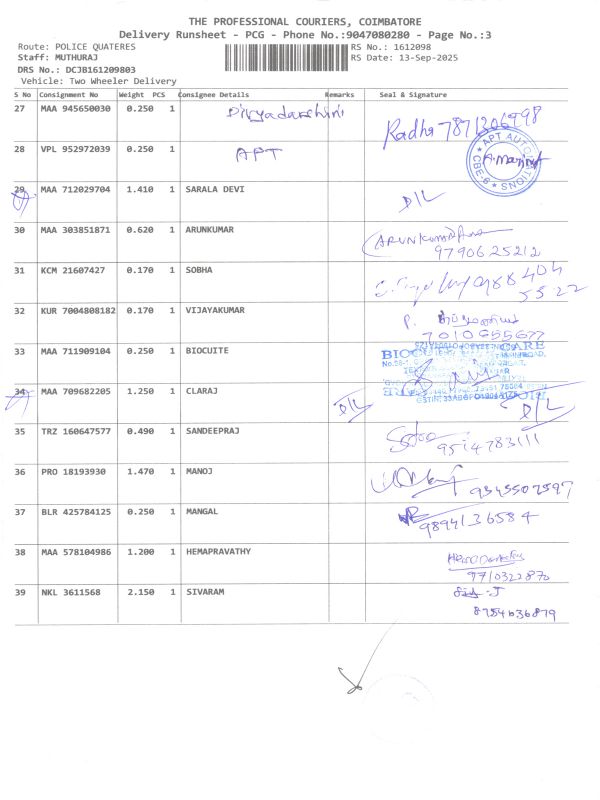 THE PROFESSIONAL COURIERS, COIMBATORE
Delivery Runsheet - PCG - Phone No.:9047080280 - Page No.:3
Route: POLICE QUATERES RS No.: 1612098
Staff: MUTHURAJ RS Date: 13-Sep-2025
DRS No.: DCJB161209803
Vehicle: Two Wheeler Delivery
S No Consignment No Weight PCS Consignee Details Remarks Seal & Signature
27 MAA 945650030 0.250 1 Divyadarshini Radha 7871306998
28 VPL 952972039 0.250 1 APT APT AUTOMATIONS CBE-6
29 MAA 712029704 1.410 1 SARALA DEVI D/L
30 MAA 303851871 0.620 1 ARUNKUMAR ARUNKUMAR
9790625212
31 KCM 21607427 0.170 1 SOBHA
5522
32 KUR 7004808182 0.170 1 VIJAYAKUMAR P.
7010655677
33 MAA 711909104 0.250 1 BIOCUITE
34 MAA 709682205 1.250 1 CLARAJ D/L D/L
35 TRZ 160647577 0.490 1 SANDEEPRAJ
9514783111
36 PRO 18193930 1.470 1 MANOJ
9345507597
37 BLR 425784125 0.250 1 MANGAL
9894136584
38 MAA 578104986 1.200 1 HEMAPRAVATHY
9710322870
39 NKL 3611568 2.150 1 SIVARAM
8754636879